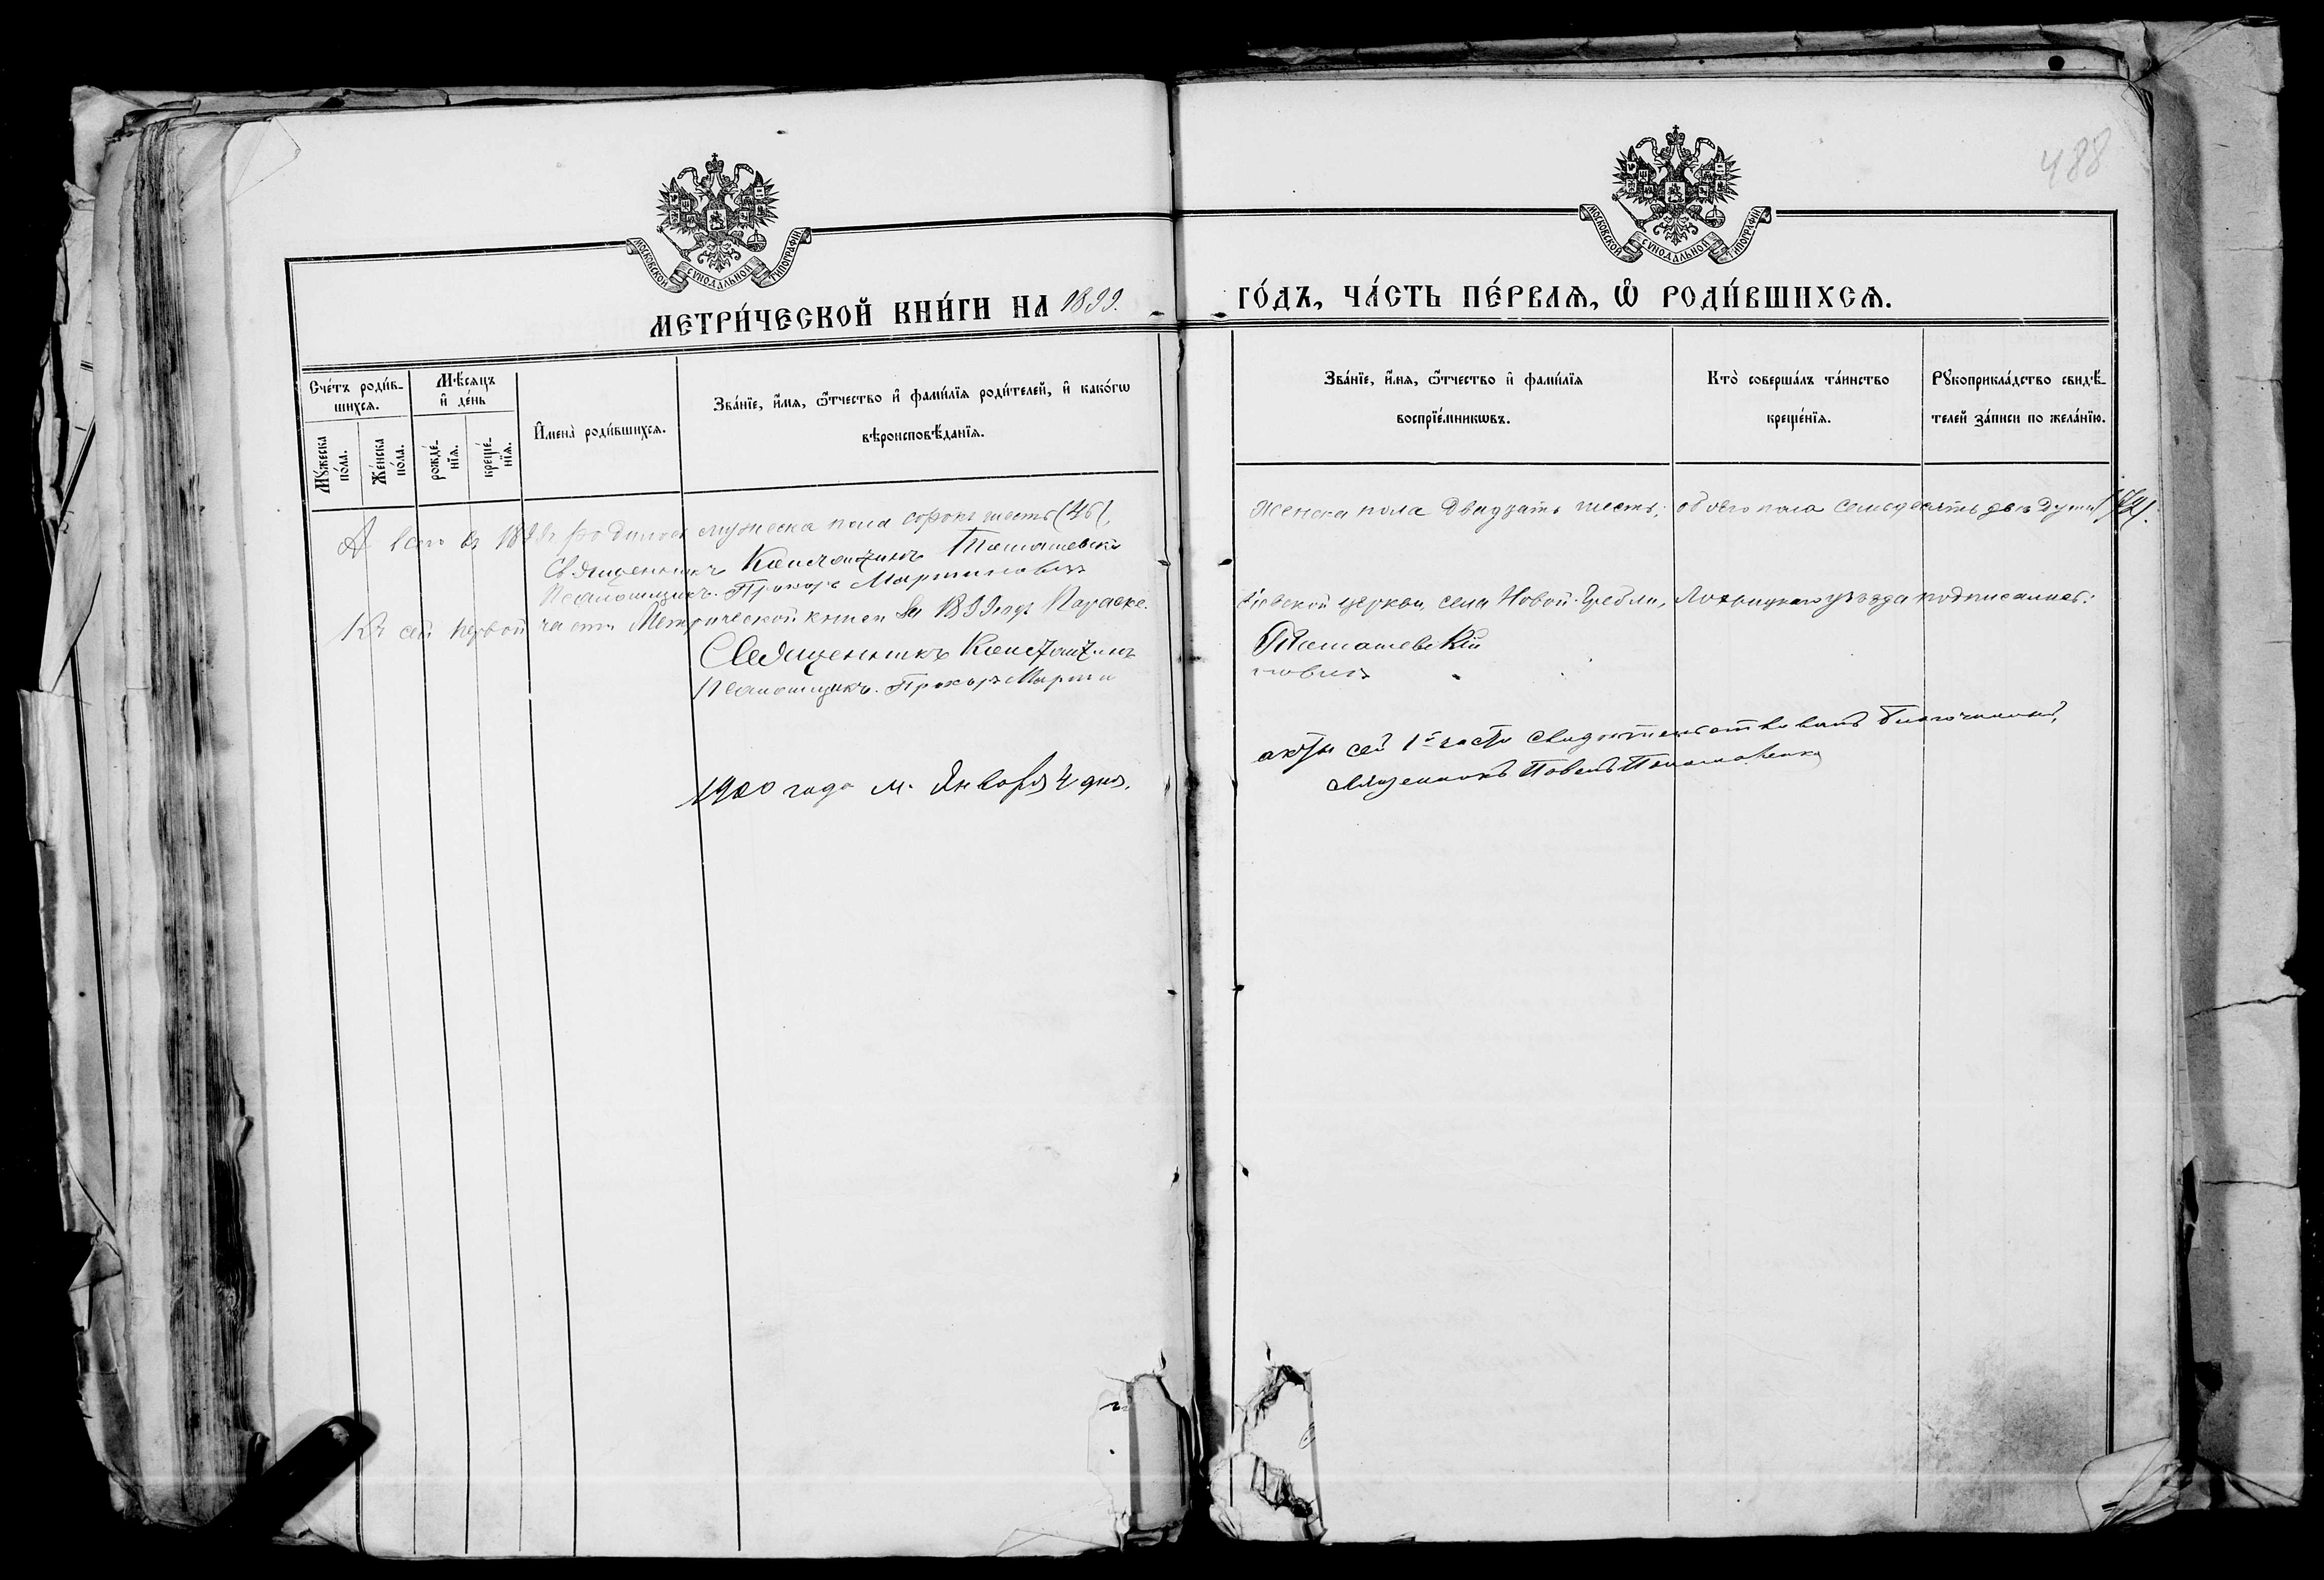 488
МОСКОВСКОЙ СѴНОДАЛЬНОЙ ТИПОГРАФІИ
МОСКОВСКОЙ СѴНОДАЛЬНОЙ ТИПОГРАФІИ
МЕТРИ́ЧЕСКОЙ КНИ́ГИ НА 1899. ГО́ДЪ, ЧА́СТЬ ПЕ́РВАѦ, Ѡ҆ РОДИ́ВШИХСѦ.
Сче́тъ роди́в-
шихсѧ.
Мꙋжеска по́ла.
Же́нска по́ла.
Мѣ́сѧцъ и҆ де́нь
рожде́-нїѧ.
креще́-нїѧ.
И҆мена̀ роди́вшихсѧ.
Зва́нїе, и҆́мѧ, ѻ҆́тчество и҆ фами́лїѧ роди́телей, и҆ како́гѡ
вѣроисповѣ́данїѧ.
Зва́нїе, и҆́мѧ, ѻ҆́тчество и҆ фами́лїѧ
воспрїе́мникѡвъ.
Кто̀ соверша́лъ та́инство
креще́нїѧ.
Рꙋкоприкла́дство свидѣ́-
телей за́писи по жела́нїю.
А всего въ 1899 г родилось мужеска пола сорокъ шесть (46), Женска пола двадцать шесть; обоего пола семьдесятъ двѣ души
Священникъ Константинъ
Псаломщикъ Прохоръ Мартиновичъ
Къ сей первой части Метрической книги за 1899 годъ Параске-
віевской церкви, села Новой-Гребли, Лохвицкаго уѣзда подписались:
Священникъ Константинъ
Псаломщикъ Прохоръ Марти
новичъ
1900 года м. Января 4 дня.
акты сей 1й части свидѣтельствовалъ Благочинный,
священникъ Павелъ